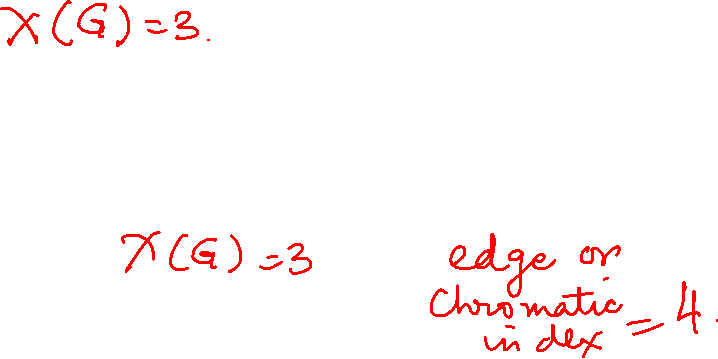 χ(G)=3.
χ(G)=3
edge or
Chromatic
index = 4.